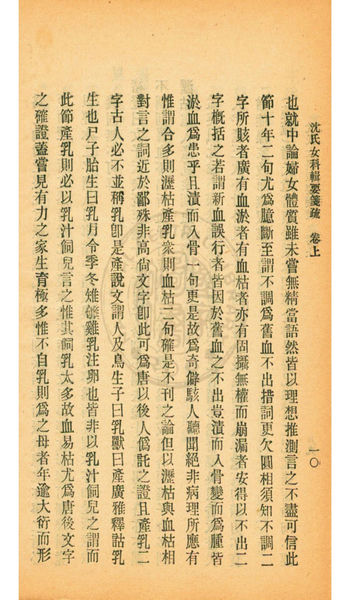 沈氏女科輯要箋疏 卷上
一〇
也就中論婦女體質雖未嘗無精當語然皆以理想推測言之不盡可信此
節十年二句尤爲臆斷至謂不調爲舊血不出措詞更欠圓相須知不調二
字所賅者廣有血淤者有血枯者亦有固攝無權而崩漏者安得以不出二
字槪括之若謂新血誤行者皆因於舊血之不出豈漬而入骨變而爲腫皆
淤血爲患乎且漬而入骨一句更是故爲奇僻駭人聽聞絕非病理所應有
惟謂合多則瀝枯產乳衆則血枯二句確是不刊之論但以瀝枯與血枯相
對言之詞近於鄙殊非高尙文字卽此可爲唐以後人僞託之證且產乳二
字古人必不並稱乳卽是產說文謂人及鳥生子曰乳獸曰產廣雅釋詁乳
生也尸子胎生曰乳月令季冬雉雊雞乳注卵也皆非以乳汁飼兒之謂而
此節產乳則必以乳汁飼兒言之惟其飼乳太多故血易枯尤爲唐後文字
之確證蓋嘗見有力之家生育極多惟不自乳則爲之母者年逾大衍而形